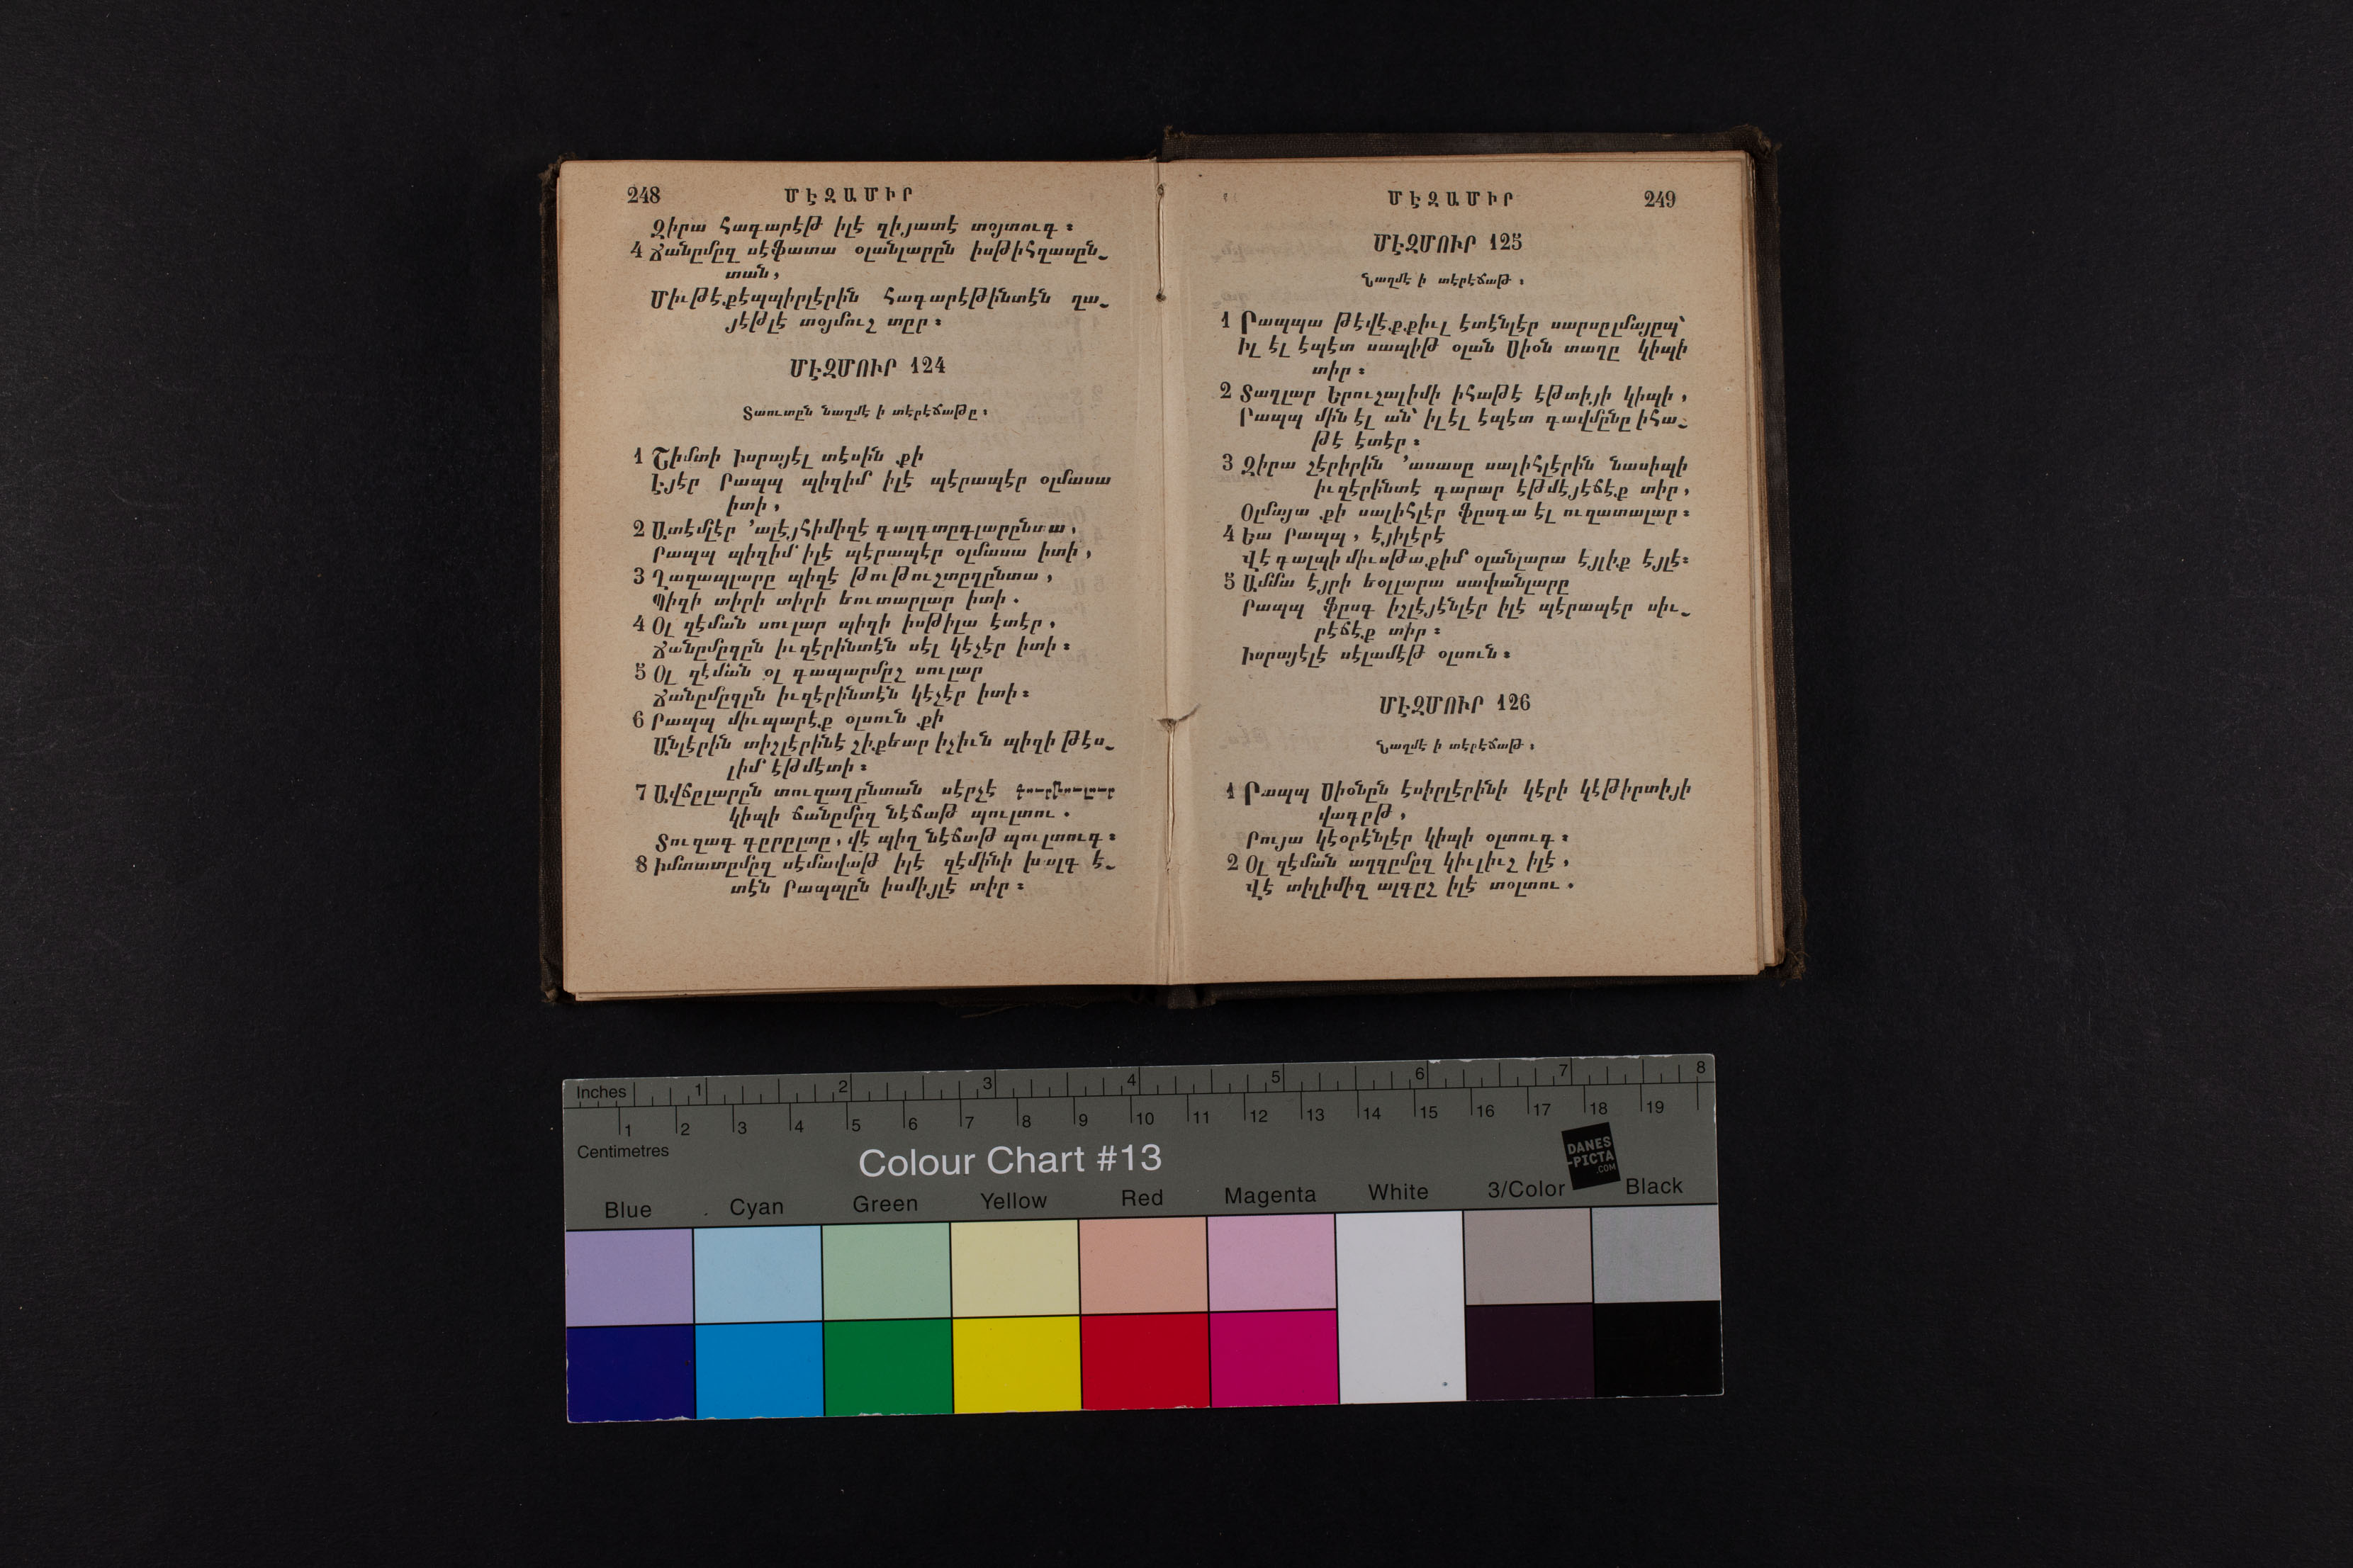 248 ՄԷԶԱՄԻՐ
Զիրա հագարէթ իլէ զիյատէ տօյտուգ ։
4 Ճանըմըզ սէֆատա օլանլարըն իսթիհզասըն֊
տան,
Միւթէքէպպիրլէրին հագարէթինտէն ղա֊
յէթլէ տօյմուշ տըր ։
ՄԷԶՄՈՒՐ 124
Տաուտըն նաղմէ ի տէրէճաթը ։
1 Շիմտի Իսրայէլ տէսին քի
Էյէր Րապպ պիզիմ իլէ պէրապէր օլմասա
իտի ,
2 Ատէմլէր ՚ալէյհիմիզէ գալգտըգլարընտա ,
Րապպ պիզիմ իլէ պէրապէր օլմասա իտի ,
3 Ղազապլարը պիզէ թութուշտըղընտա ,
Պիզի տիրի տիրի եուտարլար իտի .
4 Օլ զէման սուլար պիզի իսթիլա էտէր ,
Ճանըմըզըն իւզէրինտէն սէլ կէչէր իտի ։
5 Օլ զէման օլ գապարմըշ սուլար
Ճանըմըզըն իւզէրինտէն կէչէր իտի ։
6 Րապպ միւպարէք օլսուն քի
Անլէրին տիշլէրինէ շիքեար իչիւն պիզի թէս֊
լիմ էթմէտի ։
7 Ավճըլարըն տուզաղընտան սէրչէ
կիպի ճանըմըզ նէճաթ պուլտու .
Տուզագ գըրըլտը, վէ պիզ նէճաթ պուլտուգ ։
8 Իմտատըմըզ սէմավաթ իլէ զէմինի խալգ է֊
տէն Րապպըն իսմիյլէ տիր ։
ՄԷԶԱՄԻՐ 249
ՄԷԶՄՈՒՐ 125
Նաղմէ ի տէրէճաթ ։
1 Րապպա թէվէքքիւլ էտէնլէր սարսըլմայըպ՝
Իլ էլ էպէտ սապիթ օլան Սիօն տաղը կիպի
տիր ։
2 Տաղլար Երուշալիմի իհաթէ էթտիյի կիպի ,
Րապպ մին էլ ան՝ իլ էլ էպէտ գավմընը իհա֊
թէ էտէր ։
3 Զիրա շէրիրին ՚ասասը սալիհլէրին նասիպի
իւզէրինտէ գարար էթմէյեճէք տիր ,
Օլմայա քի սալիհլէր ֆըսգա էլ ուզատալար ։
4 Եա Րապպ , էյիլէրէ
Վէ գալպի միւսթաքիմ օլանլարա էյլիք էյլէ ։
5 Ամմա էյրի եօլլարա սափանլարը
Րապպ ֆըսգ իշլէյէնլէր իլէ պէրապէր սիւ֊
րէճէք տիր ։
Իսրայէլէ սէլամէթ օլսուն ։
ՄԷԶՄՈՒՐ 126
Նաղմէ ի տէրէճաթ ։
1 Րապպ Սիօնըն էսիրլէրինի կէրի կէթիրտիյի
վագըթ ,
Րույա կէօրէնլէր կիպի օլտուգ ։
2 Օլ զէման աղզըմըզ կիւլիւշ իլէ ,
Վէ տիլիմիզ ալգըշ իլէ տօլտու .
Inches 1 2 3 4 5 6 7 8
1 2 3 4 5 6 7 8 9 10 11 12 13 14 15 16 17 18 19
Centimetres
Colour Chart #13
DANES
-PICTA
.COM
Blue Cyan Green Yellow Red Magenta White 3/Color Black